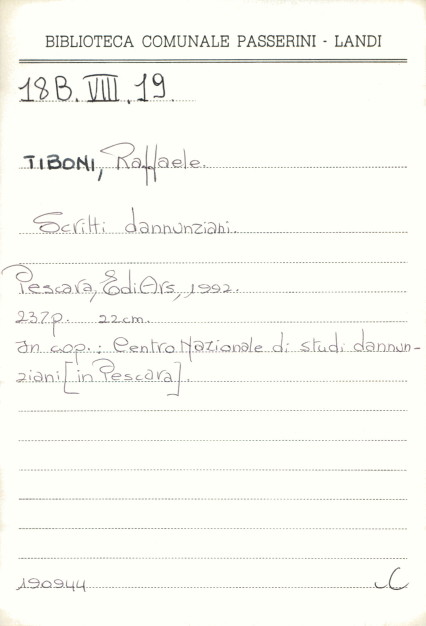 BIBLIOTECA COMUNALE PASSERINI - LANDI
18B. VIII. 19.
TIBONI, Raffaele.
Scritti dannunziani.
Pescara, EdiArs, 1992.
237p. 22cm.
In cop.: Centro Nazionale di studi dannun-
ziani [in Pescara].
190944